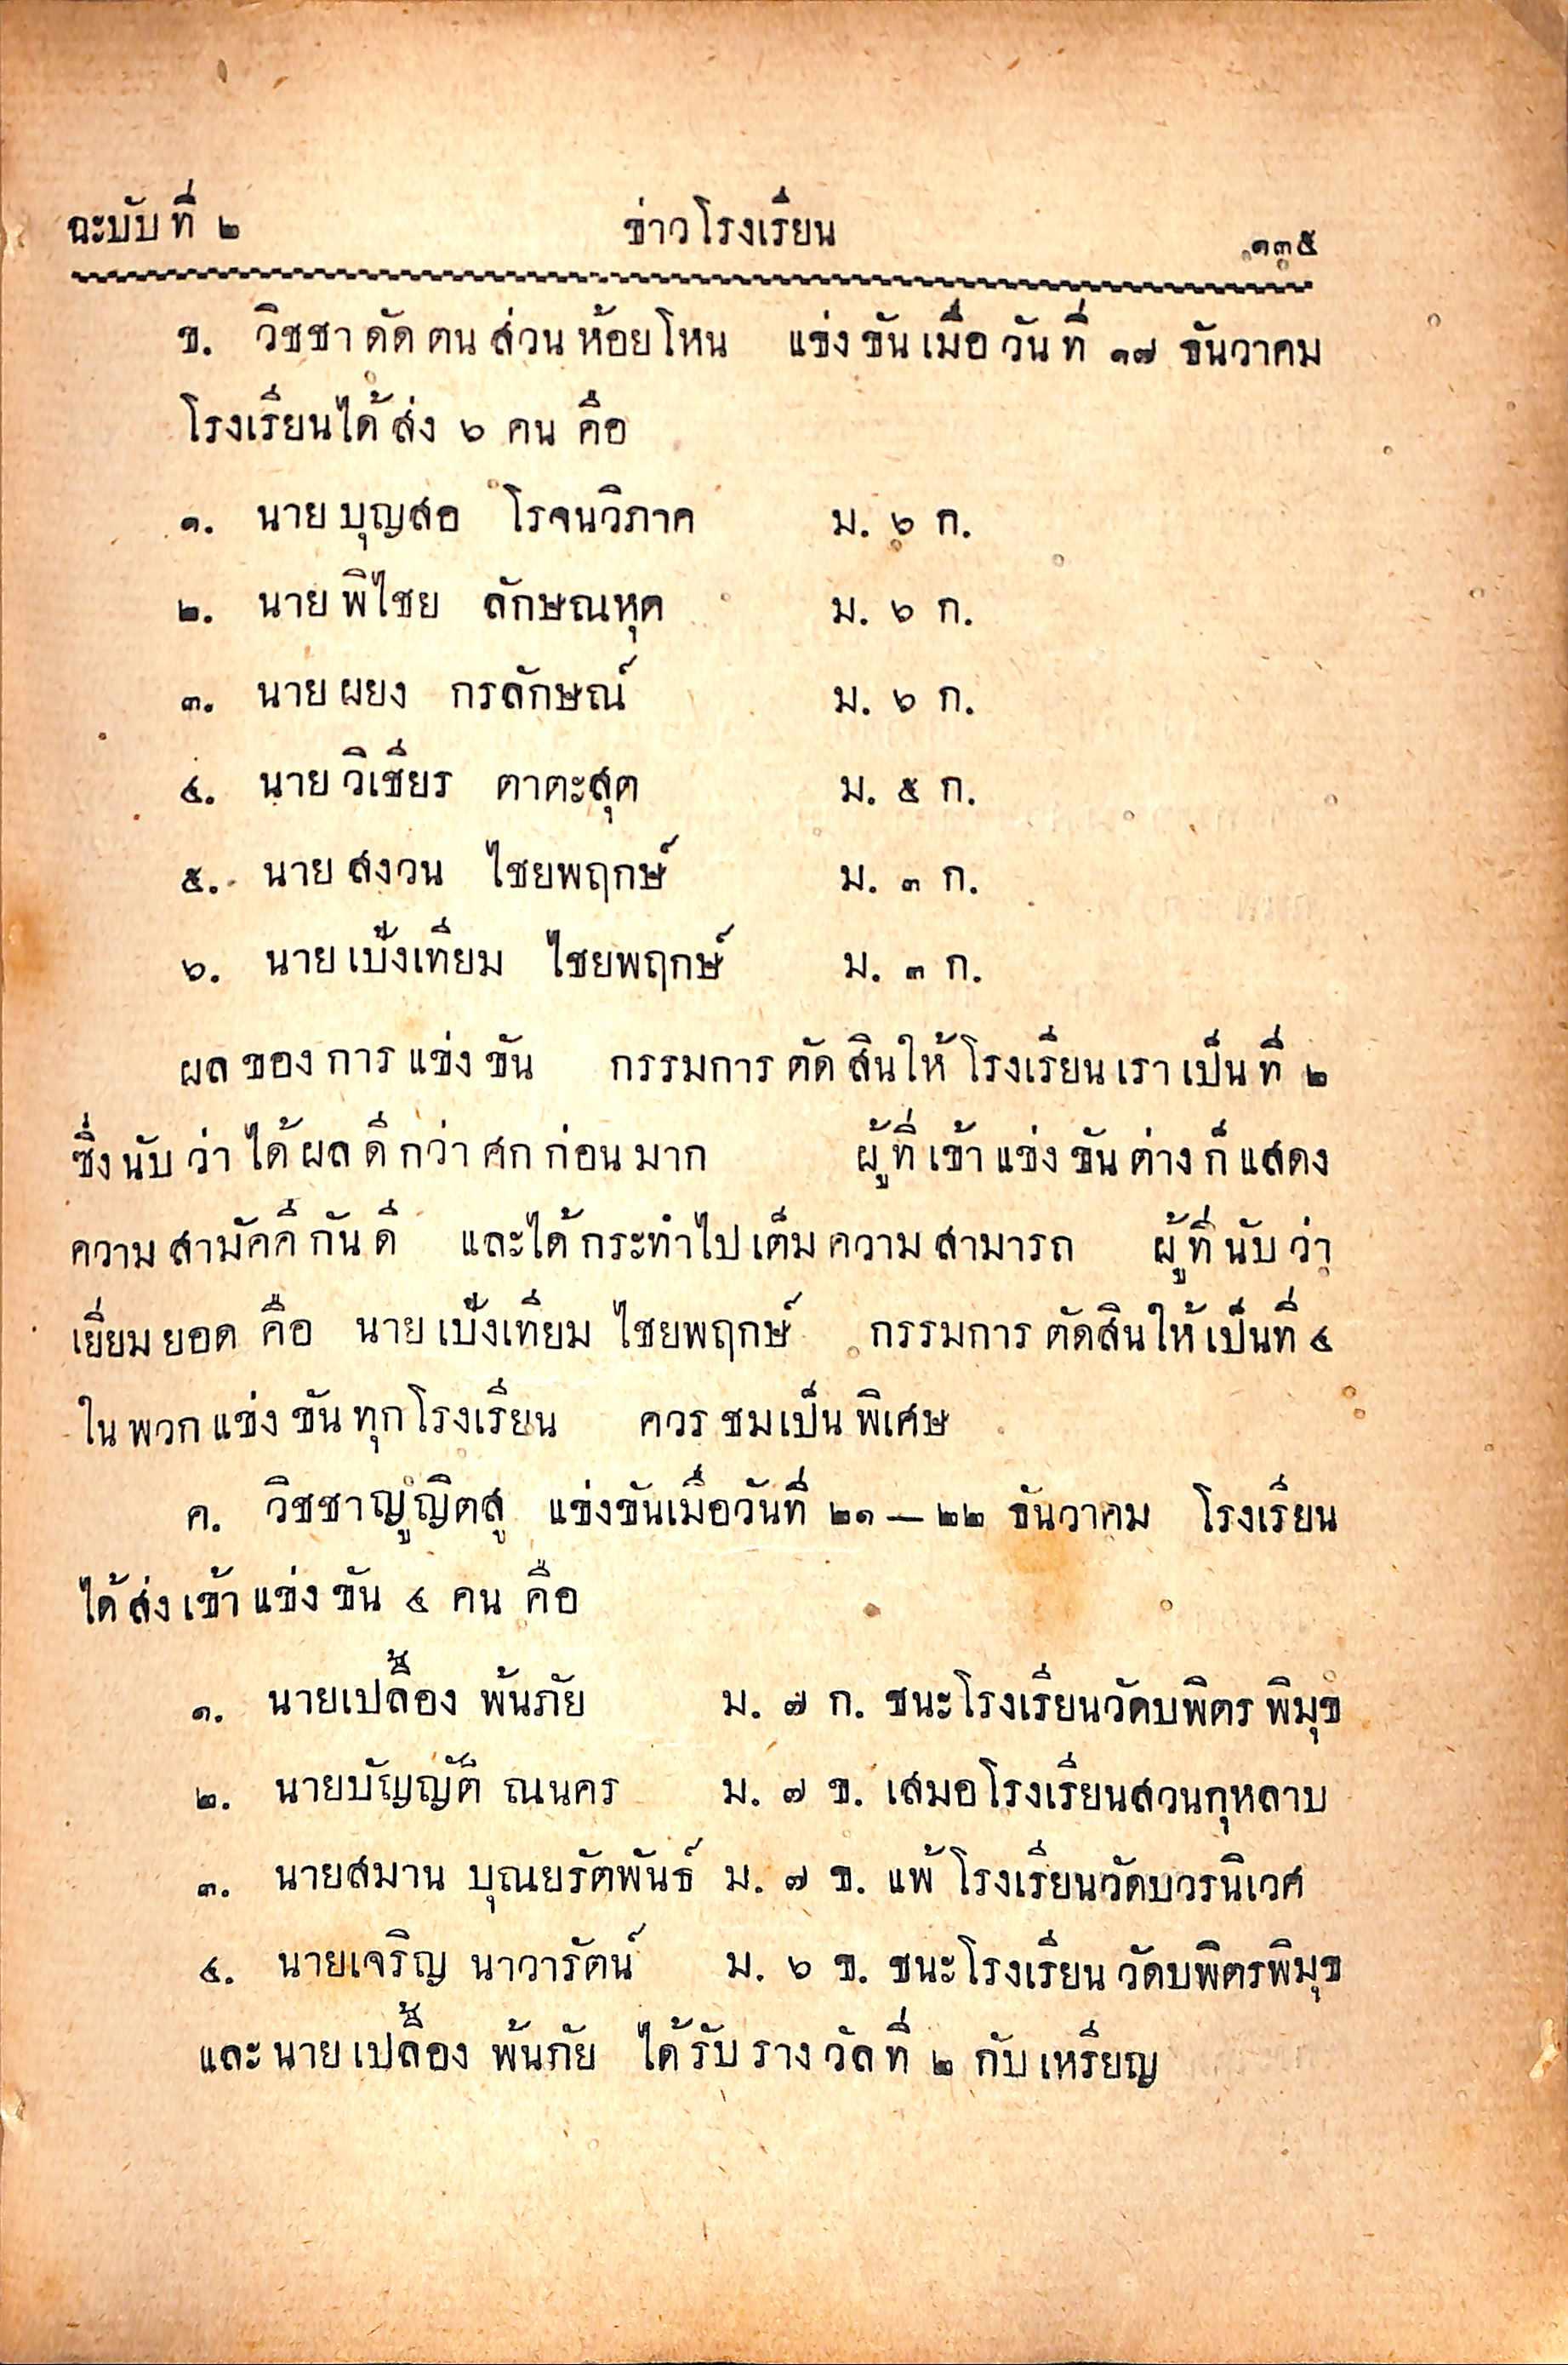 ฉะบับที่ ๒ ข่าวโรงเรียน ๑๓๕
ข. วิชชาดัดตนส่วนห้อยโหน แข่งขันเมื่อวันที่ ๑๗ ธันวาคม
โรงเรียนได้ส่ง ๖ คน คือ
๑. นายบุญสอ โรจนวิภาค ม. ๖ ก.
๒. นายพิไชย ลักษณหุต ม. ๖ ก.
๓. นายผยง กรลักษณ์ ม. ๖ ก.
๔. นายวิเชียร ตาตะสุต ม. ๕ ก.
๕. นายสงวน ไชยพฤกษ์ ม. ๓ ก.
๖. นายเบ๊งเทียม ไชยพฤกษ์ ม. ๓ ก.
ผลของการแข่งขัน กรรมการตัดสินให้โรงเรียนเราเป็นที่ ๒
ซึ่งนับว่าได้ผลดีกว่าศกก่อนมาก ผู้ที่เข้าแข่งขันต่างก็แสดง
ความสามัคคีกันดี และได้กระทำไปเต็มความสามารถ ผู้ที่นับว่า
เยี่ยมยอด คือ นายเบ๊งเทียม ไชยพฤกษ์ กรรมการตัดสินให้เป็นที่ ๔
ในพวกแข่งขันทุกโรงเรียน ควรชมเป็นพิเศษ
ค. วิชชาญูญิตสู แข่งขันเมื่อวันที่ ๒๑ — ๒๒ ธันวาคม โรงเรียน
ได้ส่งเข้าแข่งขัน ๔ คน คือ
๑. นายเปลื้อง พ้นภัย ม. ๗ ก. ชนะโรงเรียนวัดบพิตรพิมุข
๒. นายบัญญัติ ณนคร ม. ๗ ข. เสมอโรงเรียนสวนกุหลาบ
๓. นายสมาน บุณยรัตพันธ์ ม. ๗ ข. แพ้ โรงเรียนวัดบวรนิเวศ
๔. นายเจริญ นาวารัตน์ ม. ๖ ข. ชนะโรงเรียนวัดบพิตรพิมุข
และนายเปลื้อง พ้นภัย ได้รับรางวัลที่ ๒ กับเหรียญ